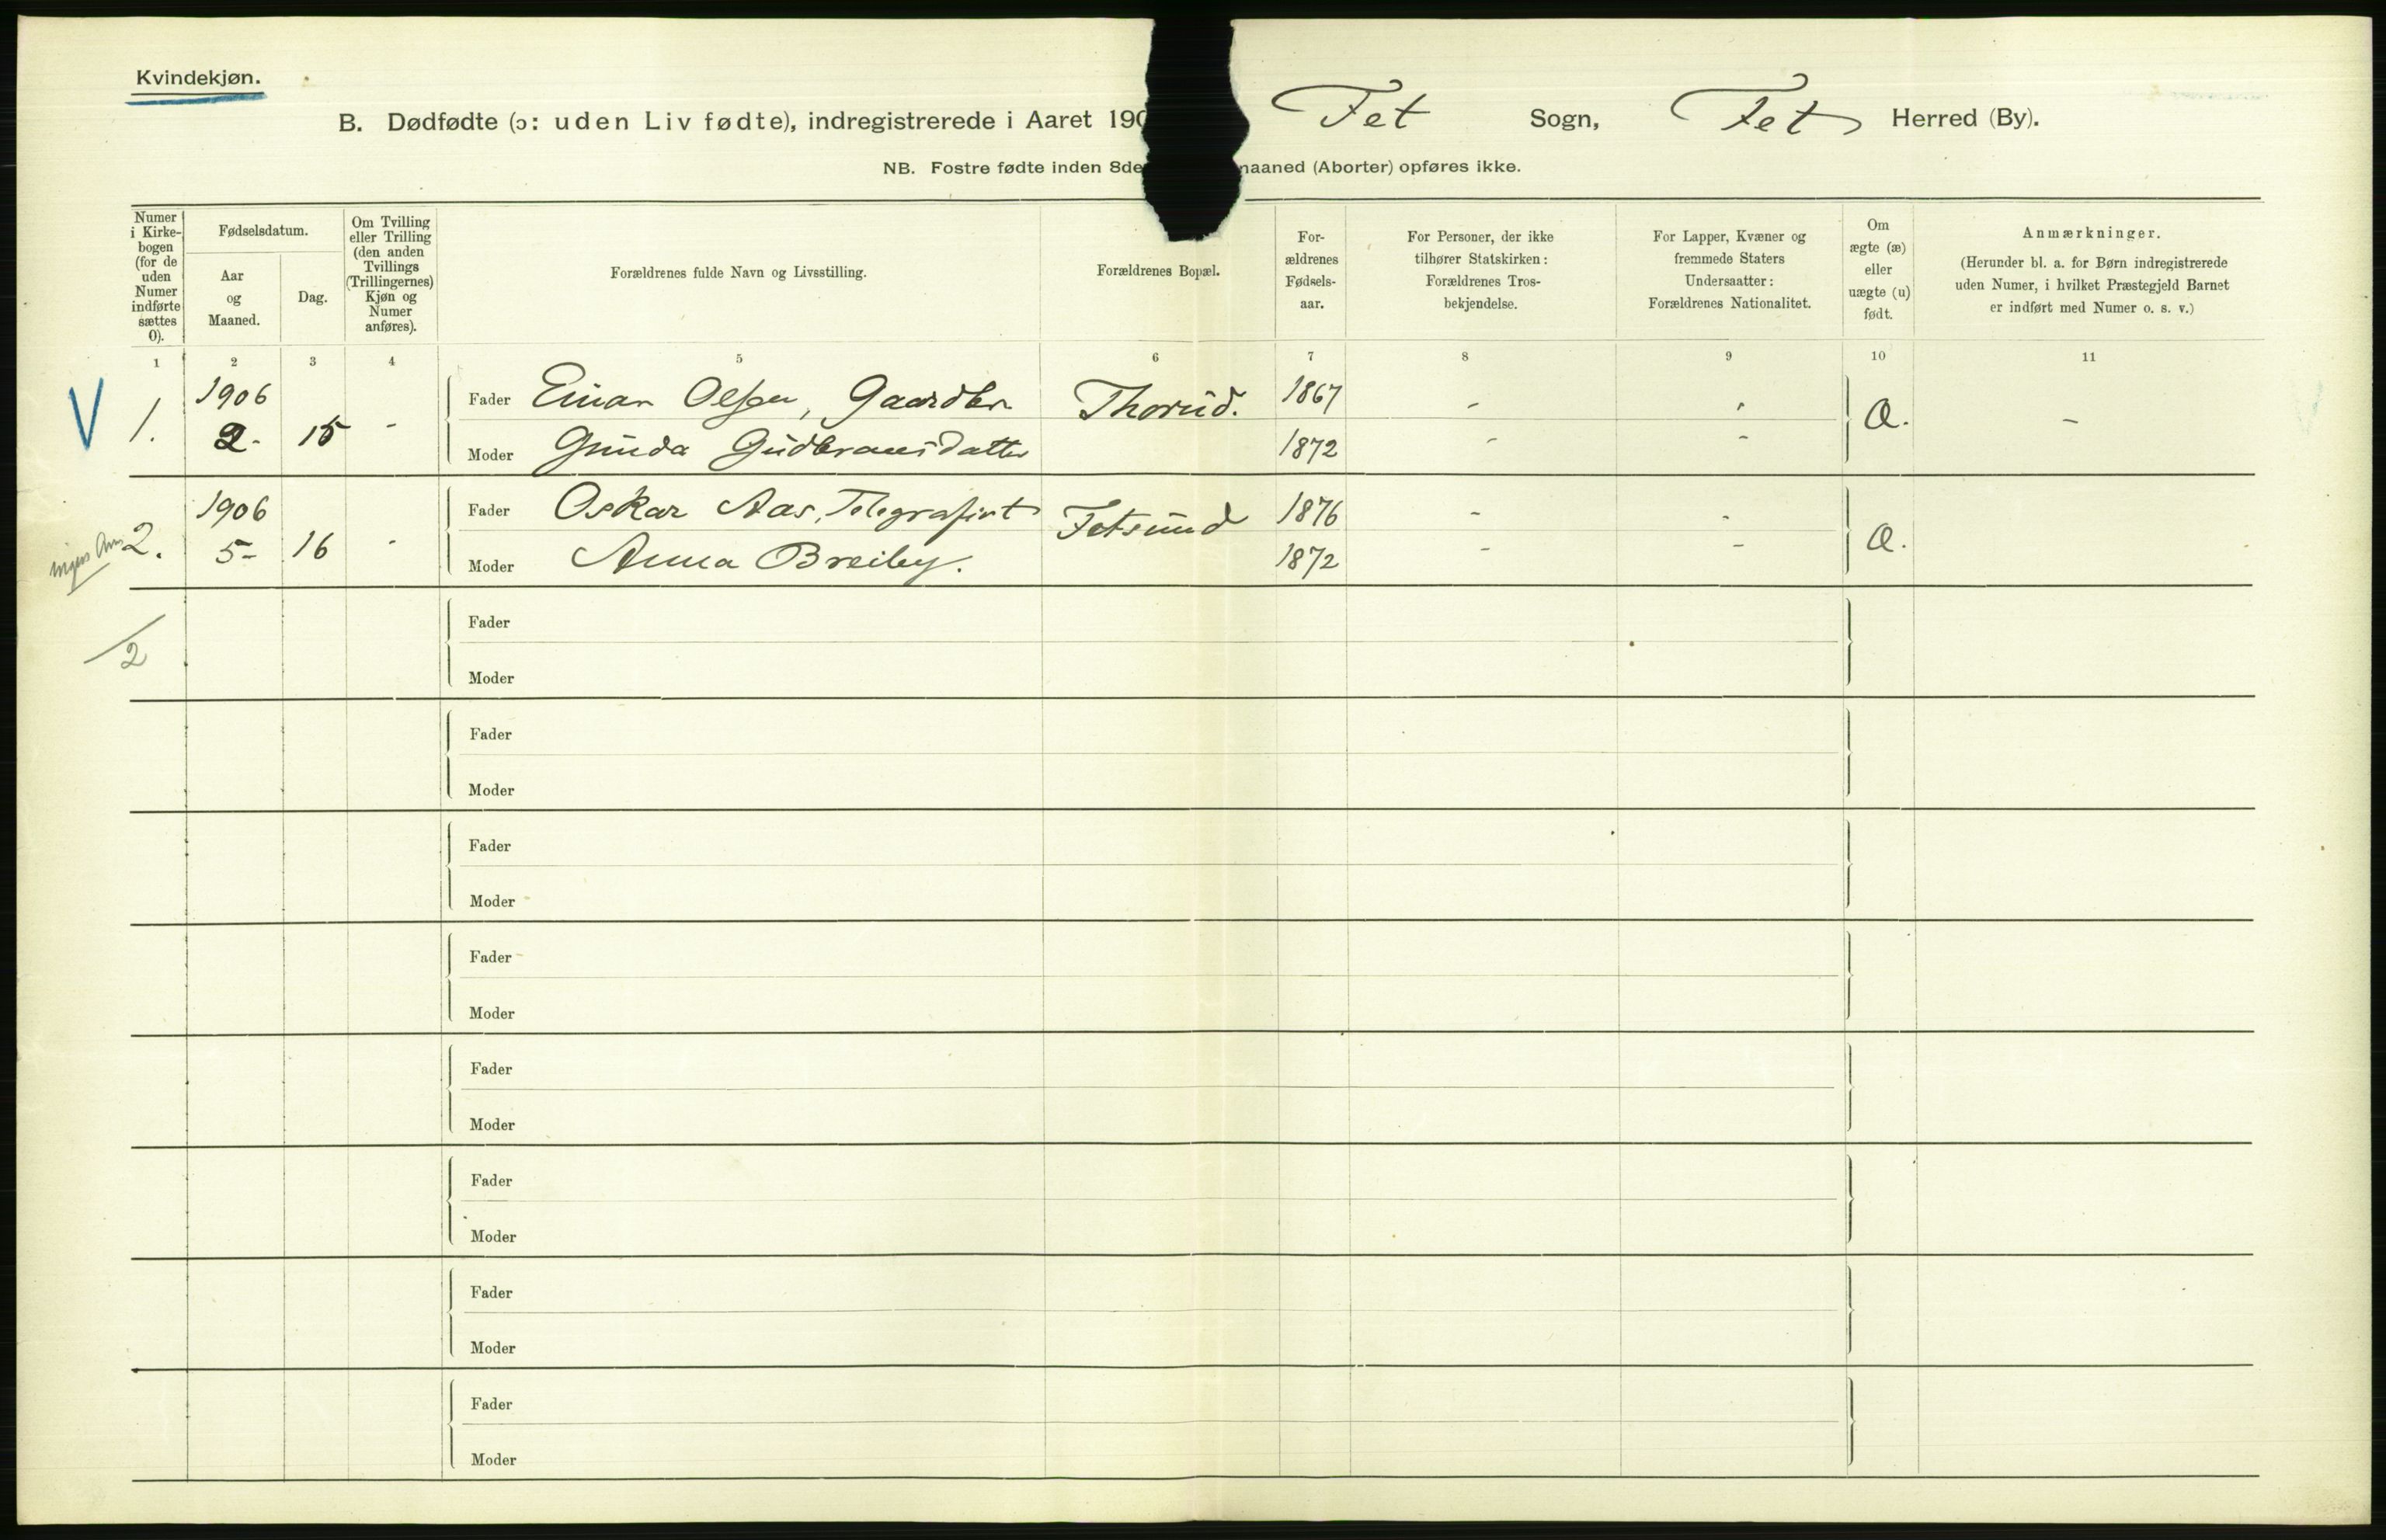 Kvindekjøn.
B. Dødfødte (ɔ: uden Liv fødte), indregistrerede i Aaret 190 Fet Sogn, Fet Herred (By).
NB. Fostre fødte inden 8de maaned (Aborter) opføres ikke.
Numer
i Kirke-
bogen
(for de
uden
Numer
indførte
sættes
0).
Fødselsdatum.
Aar
og
Maaned.
Dag.
Om Tvilling
eller Trilling
(den anden
Tvillings
(Trillingernes)
Kjøn og
Numer
anføres).
Forældrenes fulde Navn og Livsstilling.
Forældrenes Bopæl.
For-
ældrenes
Fødsels-
aar.
For Personer, der ikke
tilhører Statskirken:
Forældrenes Tros-
bekjendelse.
For Lapper, Kvæner og
fremmede Staters
Undersaatter:
Forældrenes Nationalitet.
Om
ægte (æ)
eller
uægte (u)
født.
Anmærkninger.
(Herunder bl. a. for Børn indregistrerede
uden Numer, i hvilket Præstegjeld Barnet
er indført med Numer o. s. v.)
1 2 3 4 5 6 7 8 9 10 11
V 1. 1906 2- 15 - Fader Einar Olsen, Gaardbr Thorud. 1867 - - Æ. -
Moder Gunda Gudbransdatter 1872 - -
2. 1906 5- 16 - Fader Oskar Aas, Telegrafist Fetsund 1876 - - Æ.
Moder Anna Breiby. 1872 - -
Fader
2
Moder
Fader
Moder
Fader
Moder
Fader
Moder
Fader
Moder
Fader
Moder
Fader
Moder
Fader
Moder